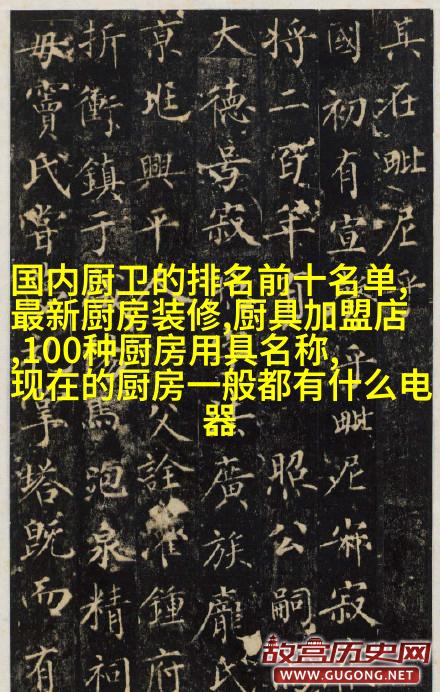 国内厨卫的排名前十名单,
最新厨房装修,厨具加盟店
,100种厨房用具名称,
现在的厨房一般都有什么电
器
其在毗尼乎
國初有宣毗尼寂
将二百年照公嗣
大德号寂廣族龐氏
京兆興平父詮灌鍾府
折衝鎮于馬泡泉精祠
毋竇氏嘗掌塔既而有
故宫历史网
WWW.GUGONG.NET